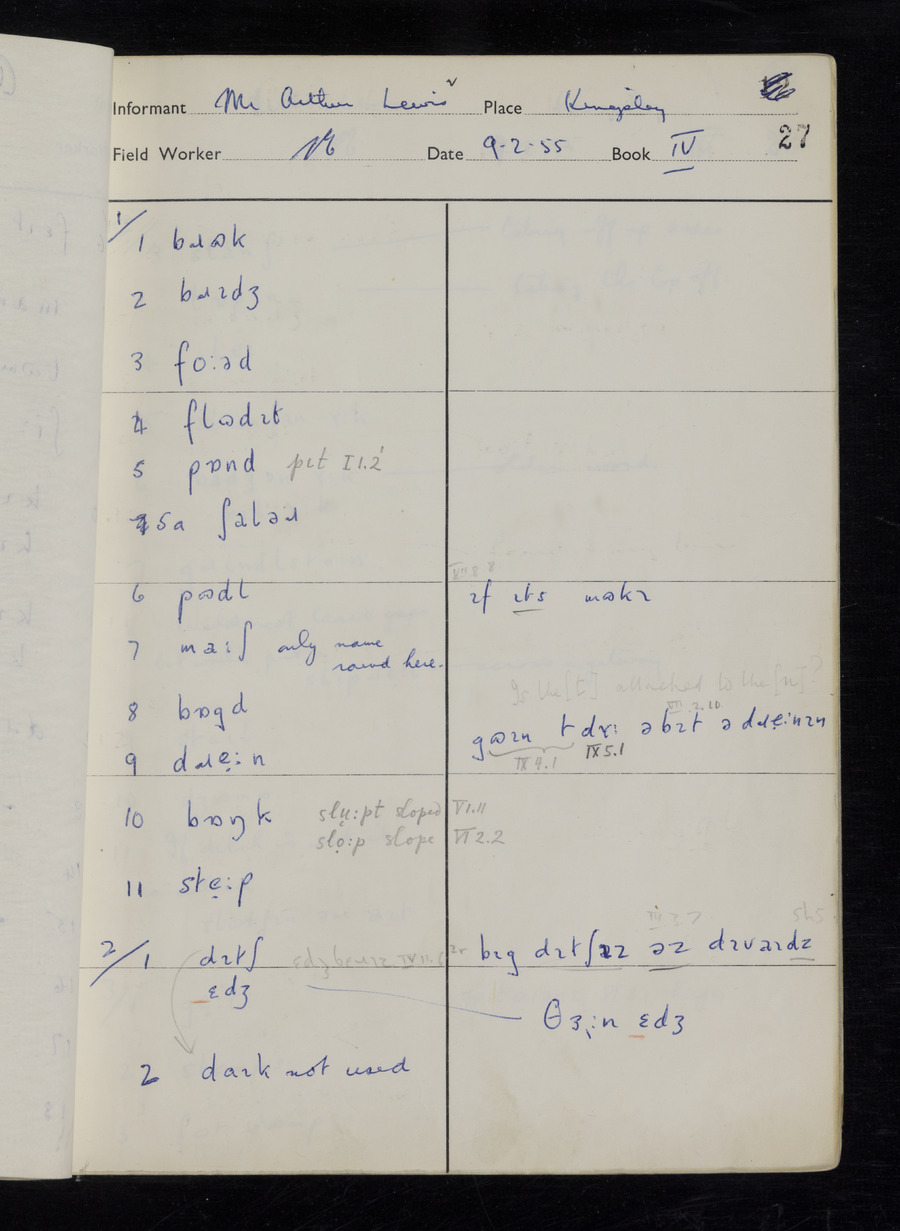 Informant Mr Arthur Lewis Place Kingsley
27
Field Worker Date 9-2-55 Book IV
1/
1 bɹʊk
2 bɹɪdʒ
3 fo:əd
4 flʊdɪt
5 pɒnd pɪt I 1.2
5a ʃaləɹ
6 pʊdl
VII 8 8
ɪf ɪts mʊkɪ
7 ma:ʃ only name
round here.
Is the [t] attached to the [n]?
8 bɒgd
VII.2.10
gʊɪn t dɤ: əbɪt ə dɹẹ:nɪn
IX 4.1 IX 5.1
9 dɹẹ:n
10 bɒŋk
slu̜:pt sloped VI.11
slọ:p slope VI 2.2
11 stẹ:p
2/
1 dɪtʃ
bɪg dɪtʃɪz əz dɪvaɪdz
ɛdʒ
θɜ:n ɛdʒ
2 daɪk not used